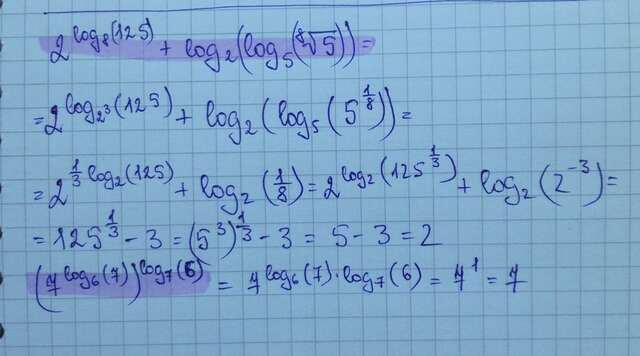 2^{log_8(125)} + log_2(log_5(\sqrt[8]{5})) =
= 2^{log_{2^3}(125)} + log_2(log_5(5^{\frac{1}{8}})) =
= 2^{\frac{1}{3} log_2(125)} + log_2(\frac{1}{8}) = 2^{log_2(125^{\frac{1}{3}})} + log_2(2^{-3}) =
= 125^{\frac{1}{3}} - 3 = (5^3)^{\frac{1}{3}} - 3 = 5 - 3 = 2
(7^{log_6(7)})^{log_7(6)} = 7^{log_6(7) \cdot log_7(6)} = 7^1 = 7